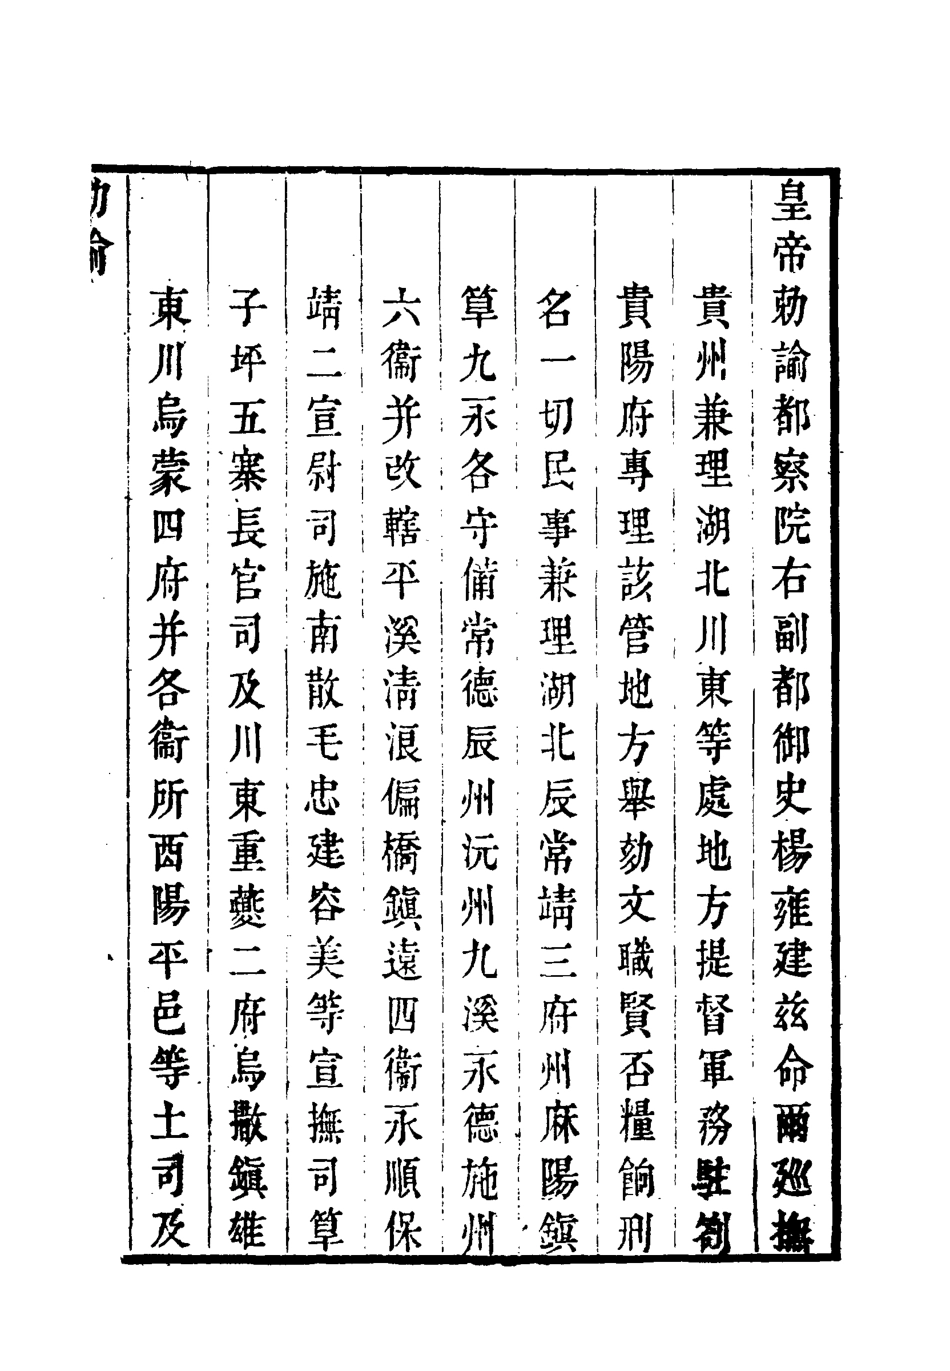 皇帝勅諭都察院右副都御史楊雍建茲命爾廵撫
貴州兼理湖北川東等處地方提督軍務駐劄
貴陽府專理該管地方舉劾文職賢否糧餉刑
名一切民事兼理湖北辰常靖三府州麻陽鎮
箪九永各守備常德辰州沅州九溪永德施州
六衞并改轄平溪清浪偏橋鎮遠四衞永順保
靖二宣尉司施南散毛忠建容美等宣撫司箪
子坪五寨長官司及川東重夔二府烏撒鎮雄
東川烏蒙四府并各衞所酉陽平邑等土司及
勅諭